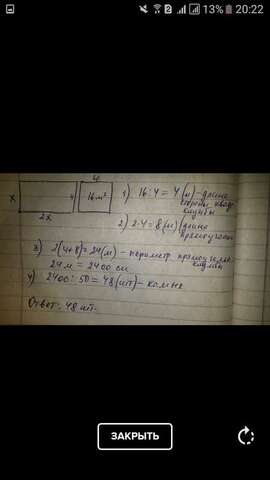 13% 20:22
4
x 4 16 м²
2x
1) 16:4 = 4 (м) - длина
стороны квад.
клумбы
2) 2·4 = 8 (м) длина
прямоуголь
3) 2(4+8) = 24 (м) - периметр прямоуголь
клумбы
24 м = 2400 см
4) 2400 : 50 = 48 (шт) -
Ответ: 48 шт.
ЗАКРЫТЬ